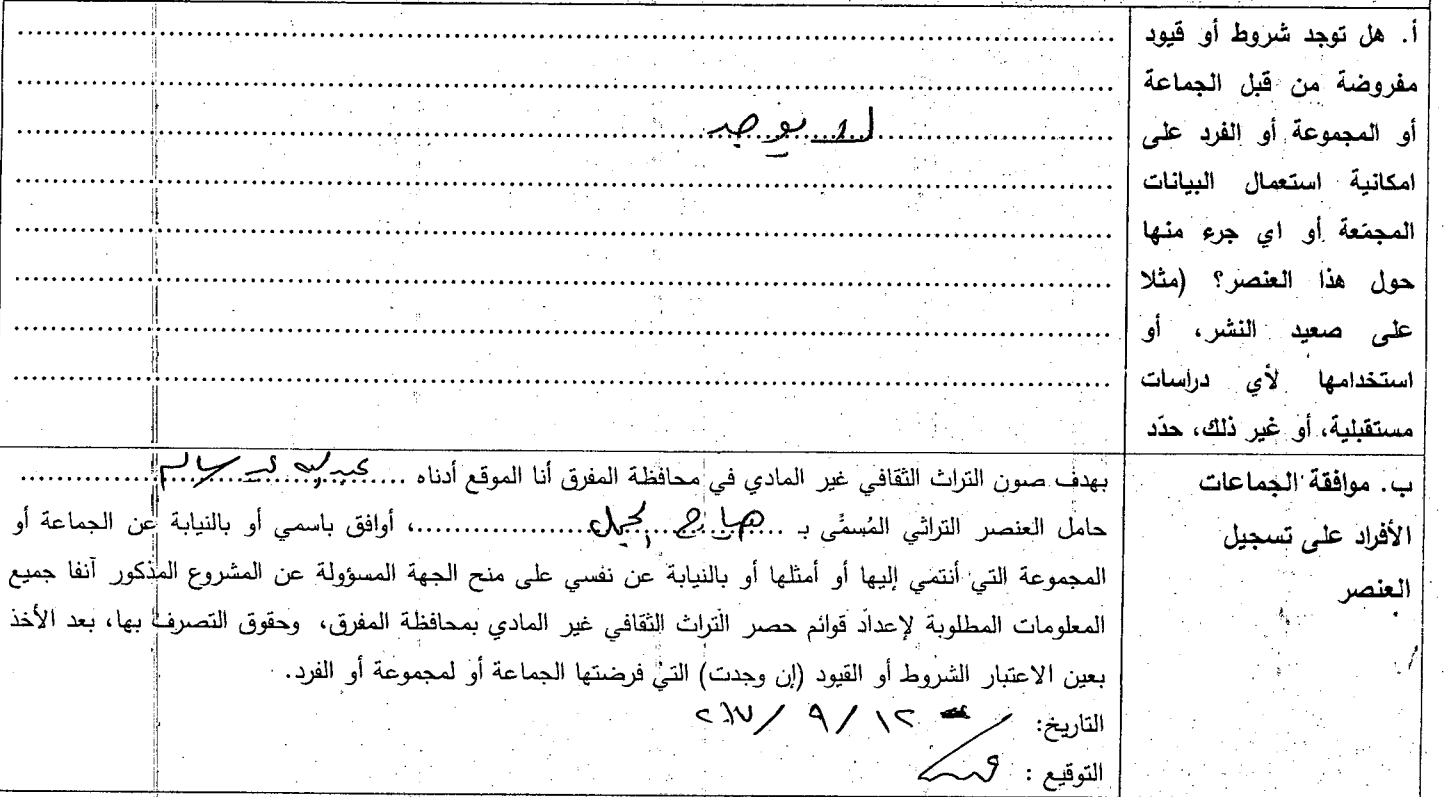 أ. هل توجد شروط أو قيود
مفروضة من قبل الجماعة
أو المجموعة أو الفرد على
امكانية استعمال البيانات
المجمّعة أو اي جرء منها
حول هذا العنصر؟ (مثلا
على صعيد النشر، أو
استخدامها لأي دراسات
مستقبلية، أو غير ذلك، حدّد
لا يوجد
ب. موافقة الجماعات
الأفراد على تسجيل
العنصر
بهدف صون التراث الثقافي غير المادي في محافظة المفرق أنا الموقع أدناه ..... سالم .....
حامل العنصر التراثي المُسمَّى بـ ..........، أوافق باسمي أو بالنيابة عن الجماعة أو
المجموعة التي أنتمي إليها أو أمثلها أو بالنيابة عن نفسي على منح الجهة المسؤولة عن المشروع المذكور آنفا جميع
المعلومات المطلوبة لإعداد قوائم حصر التراث الثقافي غير المادي بمحافظة المفرق، وحقوق التصرف بها، بعد الأخذ
بعين الاعتبار الشروط أو القيود (إن وجدت) التي فرضتها الجماعة أو لمجموعة أو الفرد.
التاريخ: ١٢ / ٩ / ٢٠١٧
التوقيع :